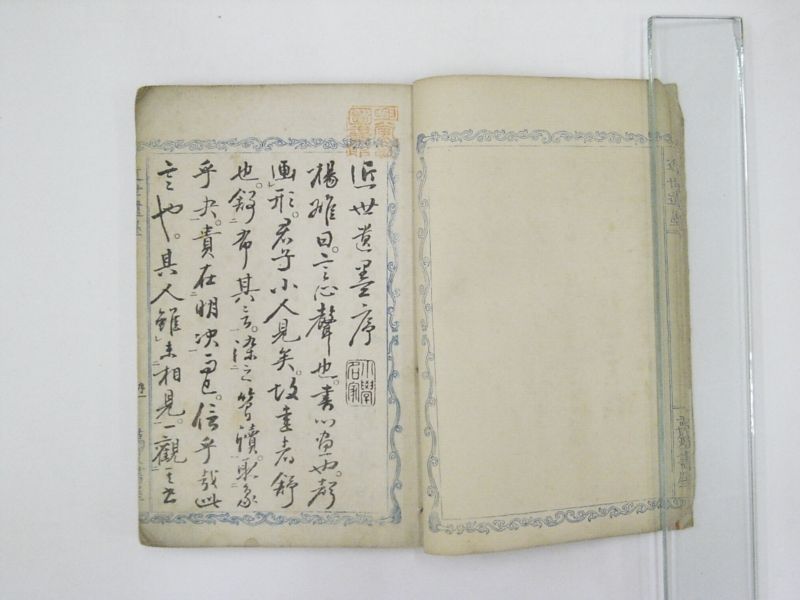 近世遺墨序
楊雄曰。言心聲也。書心畫也。聲
畫形。君子小人見矣。故書者舒
也。舒布其言。染之管牘。取象
乎夬。貴在明決而已。信乎哉此
言也。其人雖未相見。一觀其書
近世遺墨